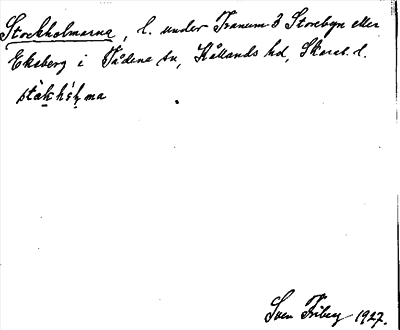 Stockholmarna, l. under Tranum 3 Storebyn eller
Ekeberg i Tådene sn, Kållands hd, Skarab. l.
ståkhólma
Sven Friberg 1927.